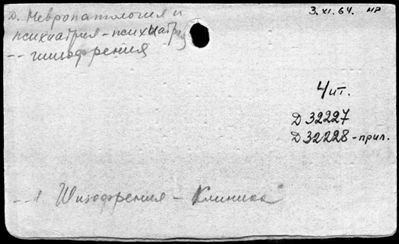 Д. Невропатология и 3.XI.64. НР
психиатрия - психиатрия
-- шизофрения
4 чит.
Д 32227
Д 32228 - прил.
-- 1 Шизофрения - Клиника